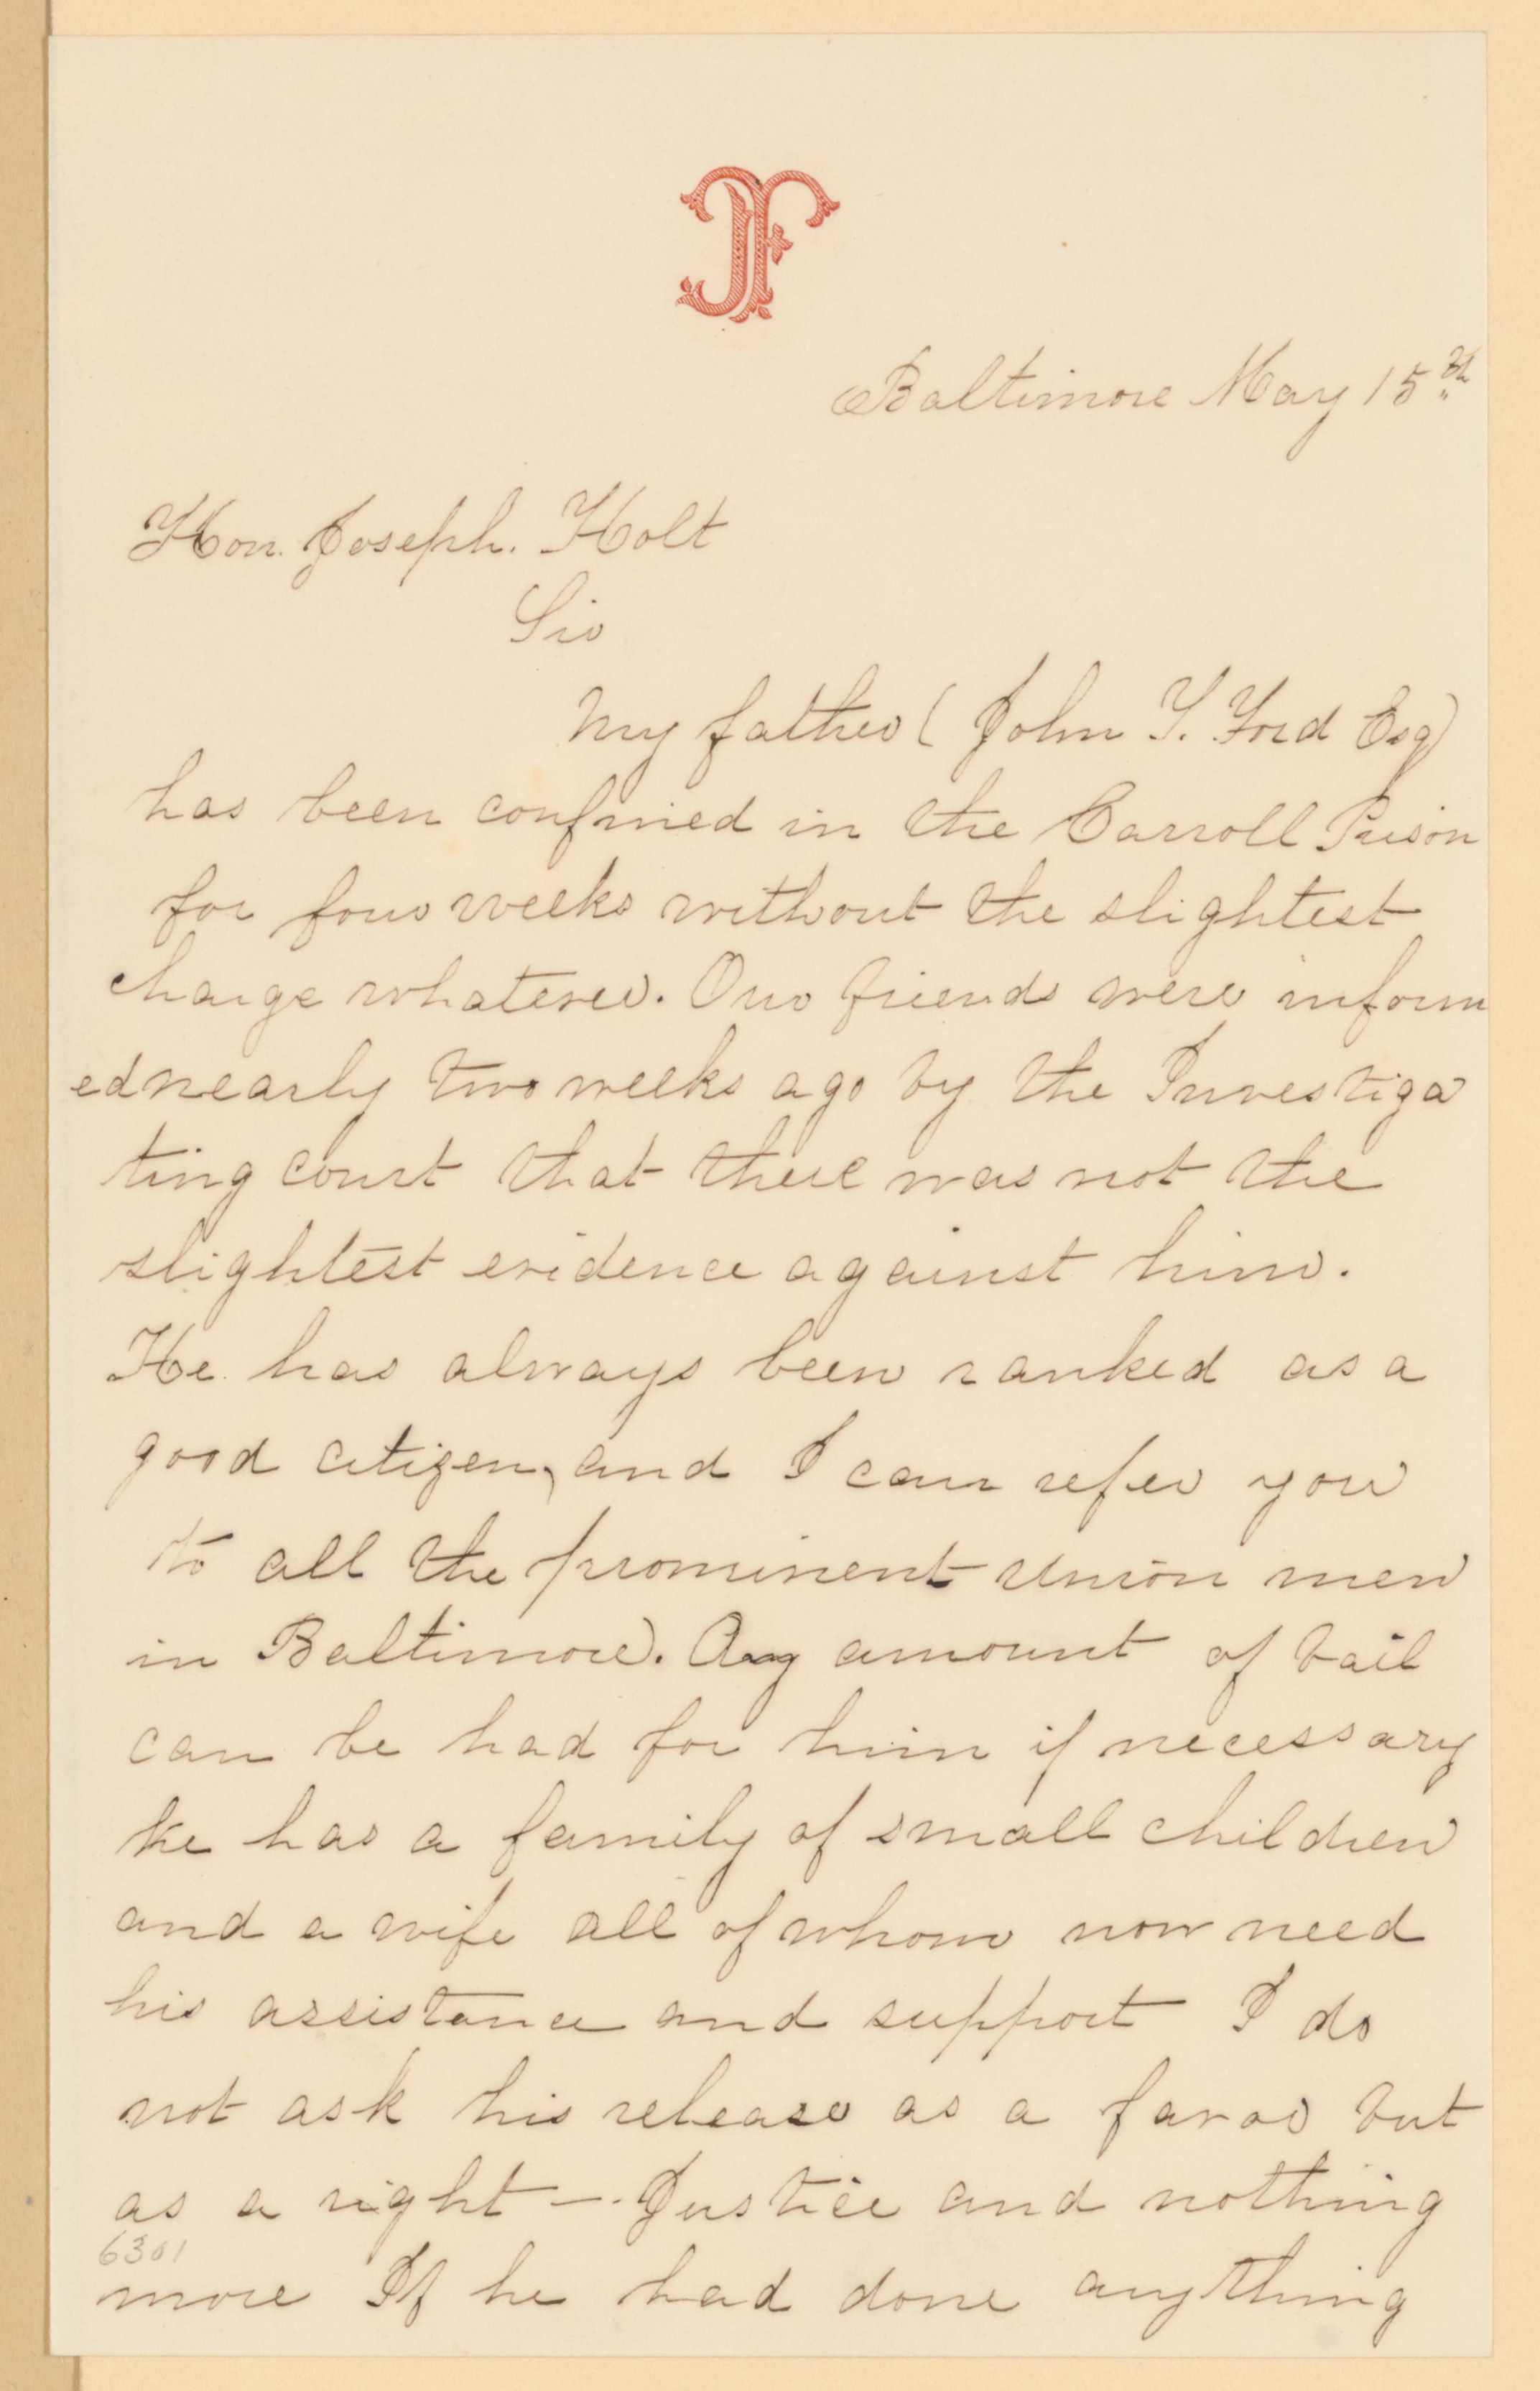 JF
Baltimore May 15th
Hon. Joseph. Holt
Sir
My father (John T. Ford Esq)
has been confined in the Carroll Prison
for four weeks without the slightest
charge whatever. Our friends were inform
ed nearly two weeks ago by the Investiga
ting court that there was not the
slightest evidence against him.
He has always been ranked as a
good citizen, and I can refer you
to all the prominent Union men
in Baltimore. Any amount of bail
can be had for him if necessary
he has a family of small children
and a wife all of whom now need
his assistance and support I do
not ask his release as a favor but
as a right —. Justice and nothing
6301
more If he had done anything